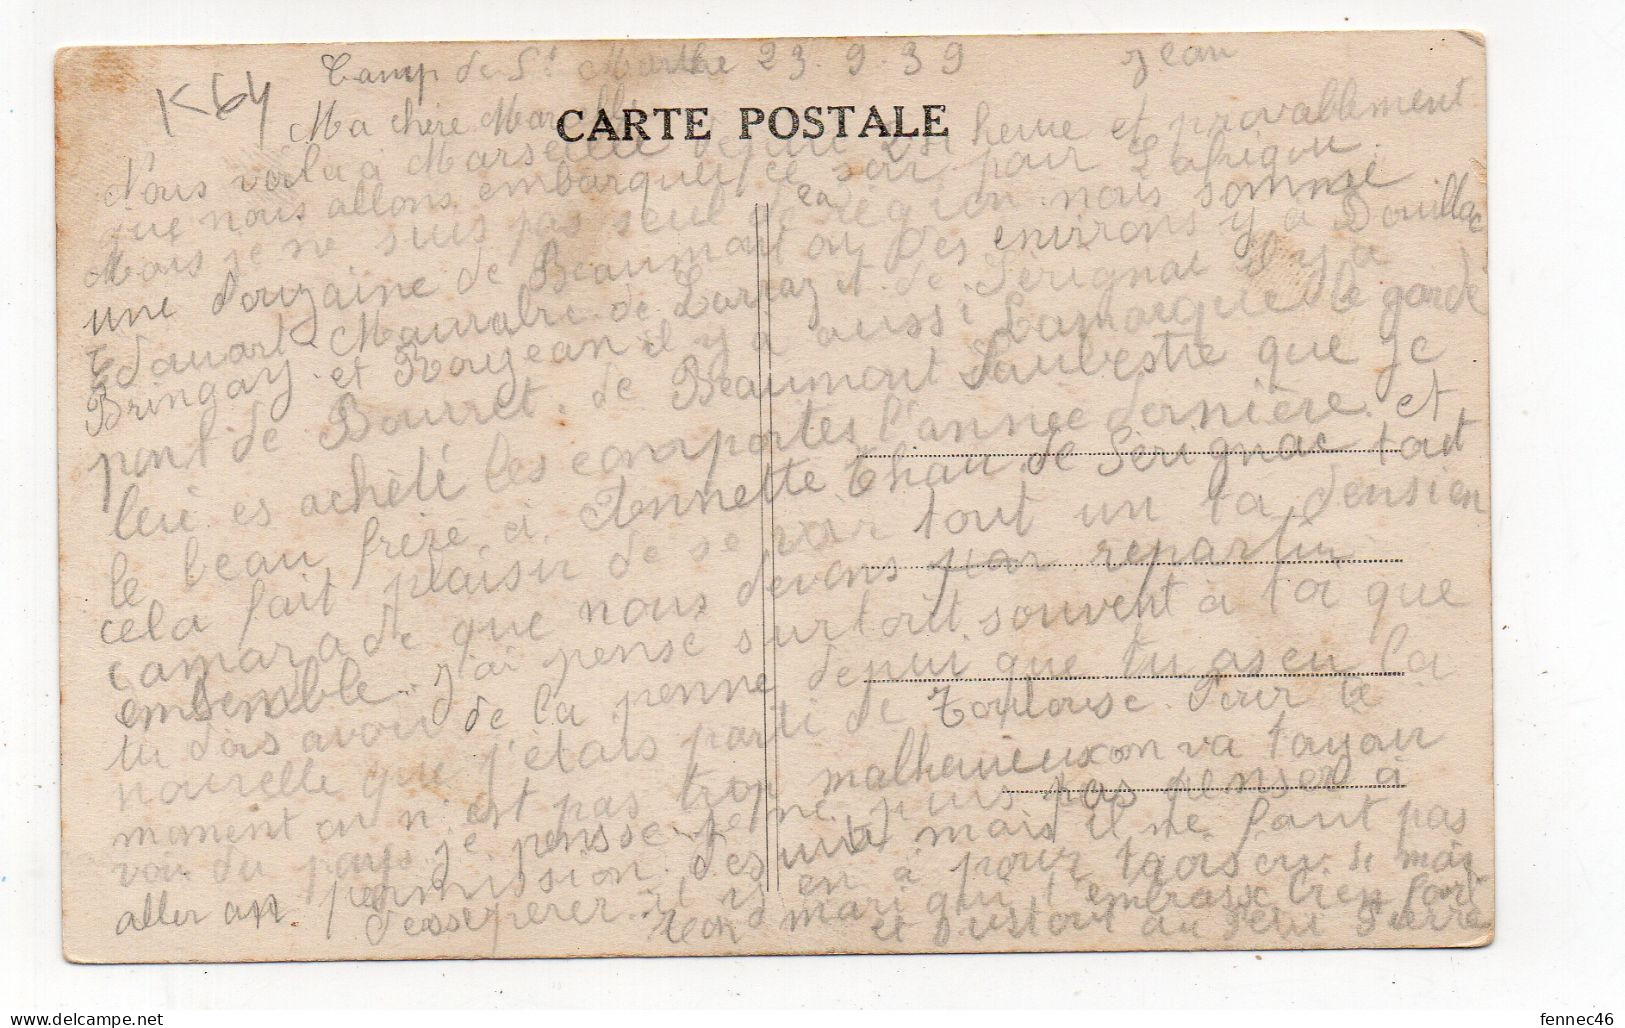 Camp de St Marthe 23.9.39 Jean
K64
CARTE POSTALE
Ma chère
Nous voila a Marseille depuis 24 heure et provablement
que nous allons embarquer ce soir pour L'afrique.
Mais je ne suis pas seul de la région nous somme
une douzaine de Beaumont ou des environs y a Douillac
Edouart. de Larrazet. de Sérignac il y a
Bringay et Roujean il y a aussi Lamarque le garde
pont de Bourret. de Beaumont Saubestre que je
lui es achété les comportes l'année dernière. et
le beau frère a Annette Thau de Sérignac tout
cela fait plaisir de se voir tout un ta d'ensien
camarade que nous devons repartir
ensemble. j'ai pensé surtout souvent à toi que
tu dois avoir de la penne depui que tu as eu la
nouvelle que j'étais parti de Toulouse. Pour le
moment on n'est pas trop malheureux on va tayour
voir du pays je pensse je ne puis pas penser à
aller an permission des mais il ne faut pas
dessepérer. il y en à pour trois ou si mois
Ton mari qui t'embrasse bien fort
et surtout au Petit Pierre
fennec46